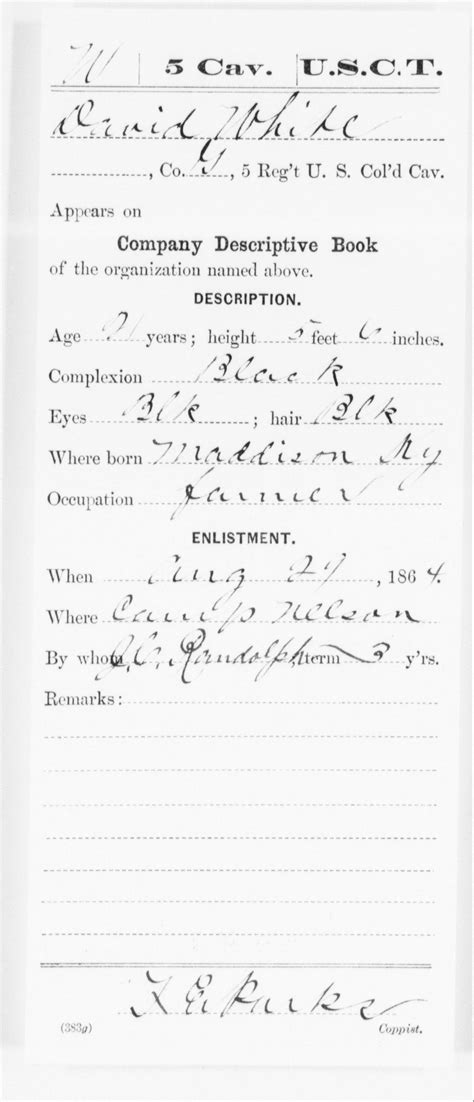 W | 5 Cav. | U.S.C.T.
David White
, Co. G, 5 Reg't U. S. Col'd Cav.
Appears on
Company Descriptive Book
of the organization named above.
DESCRIPTION.
Age 21 years; height 5 feet 6 inches.
Complexion Black
Eyes Blk ; hair Blk
Where born Maddison Ky
Occupation farmer
ENLISTMENT.
When Aug 29, 1864.
Where Camp Nelson
By whom J.C. Randolph, term 3 y'rs.
Remarks:
Parks
(383g) Coppist.